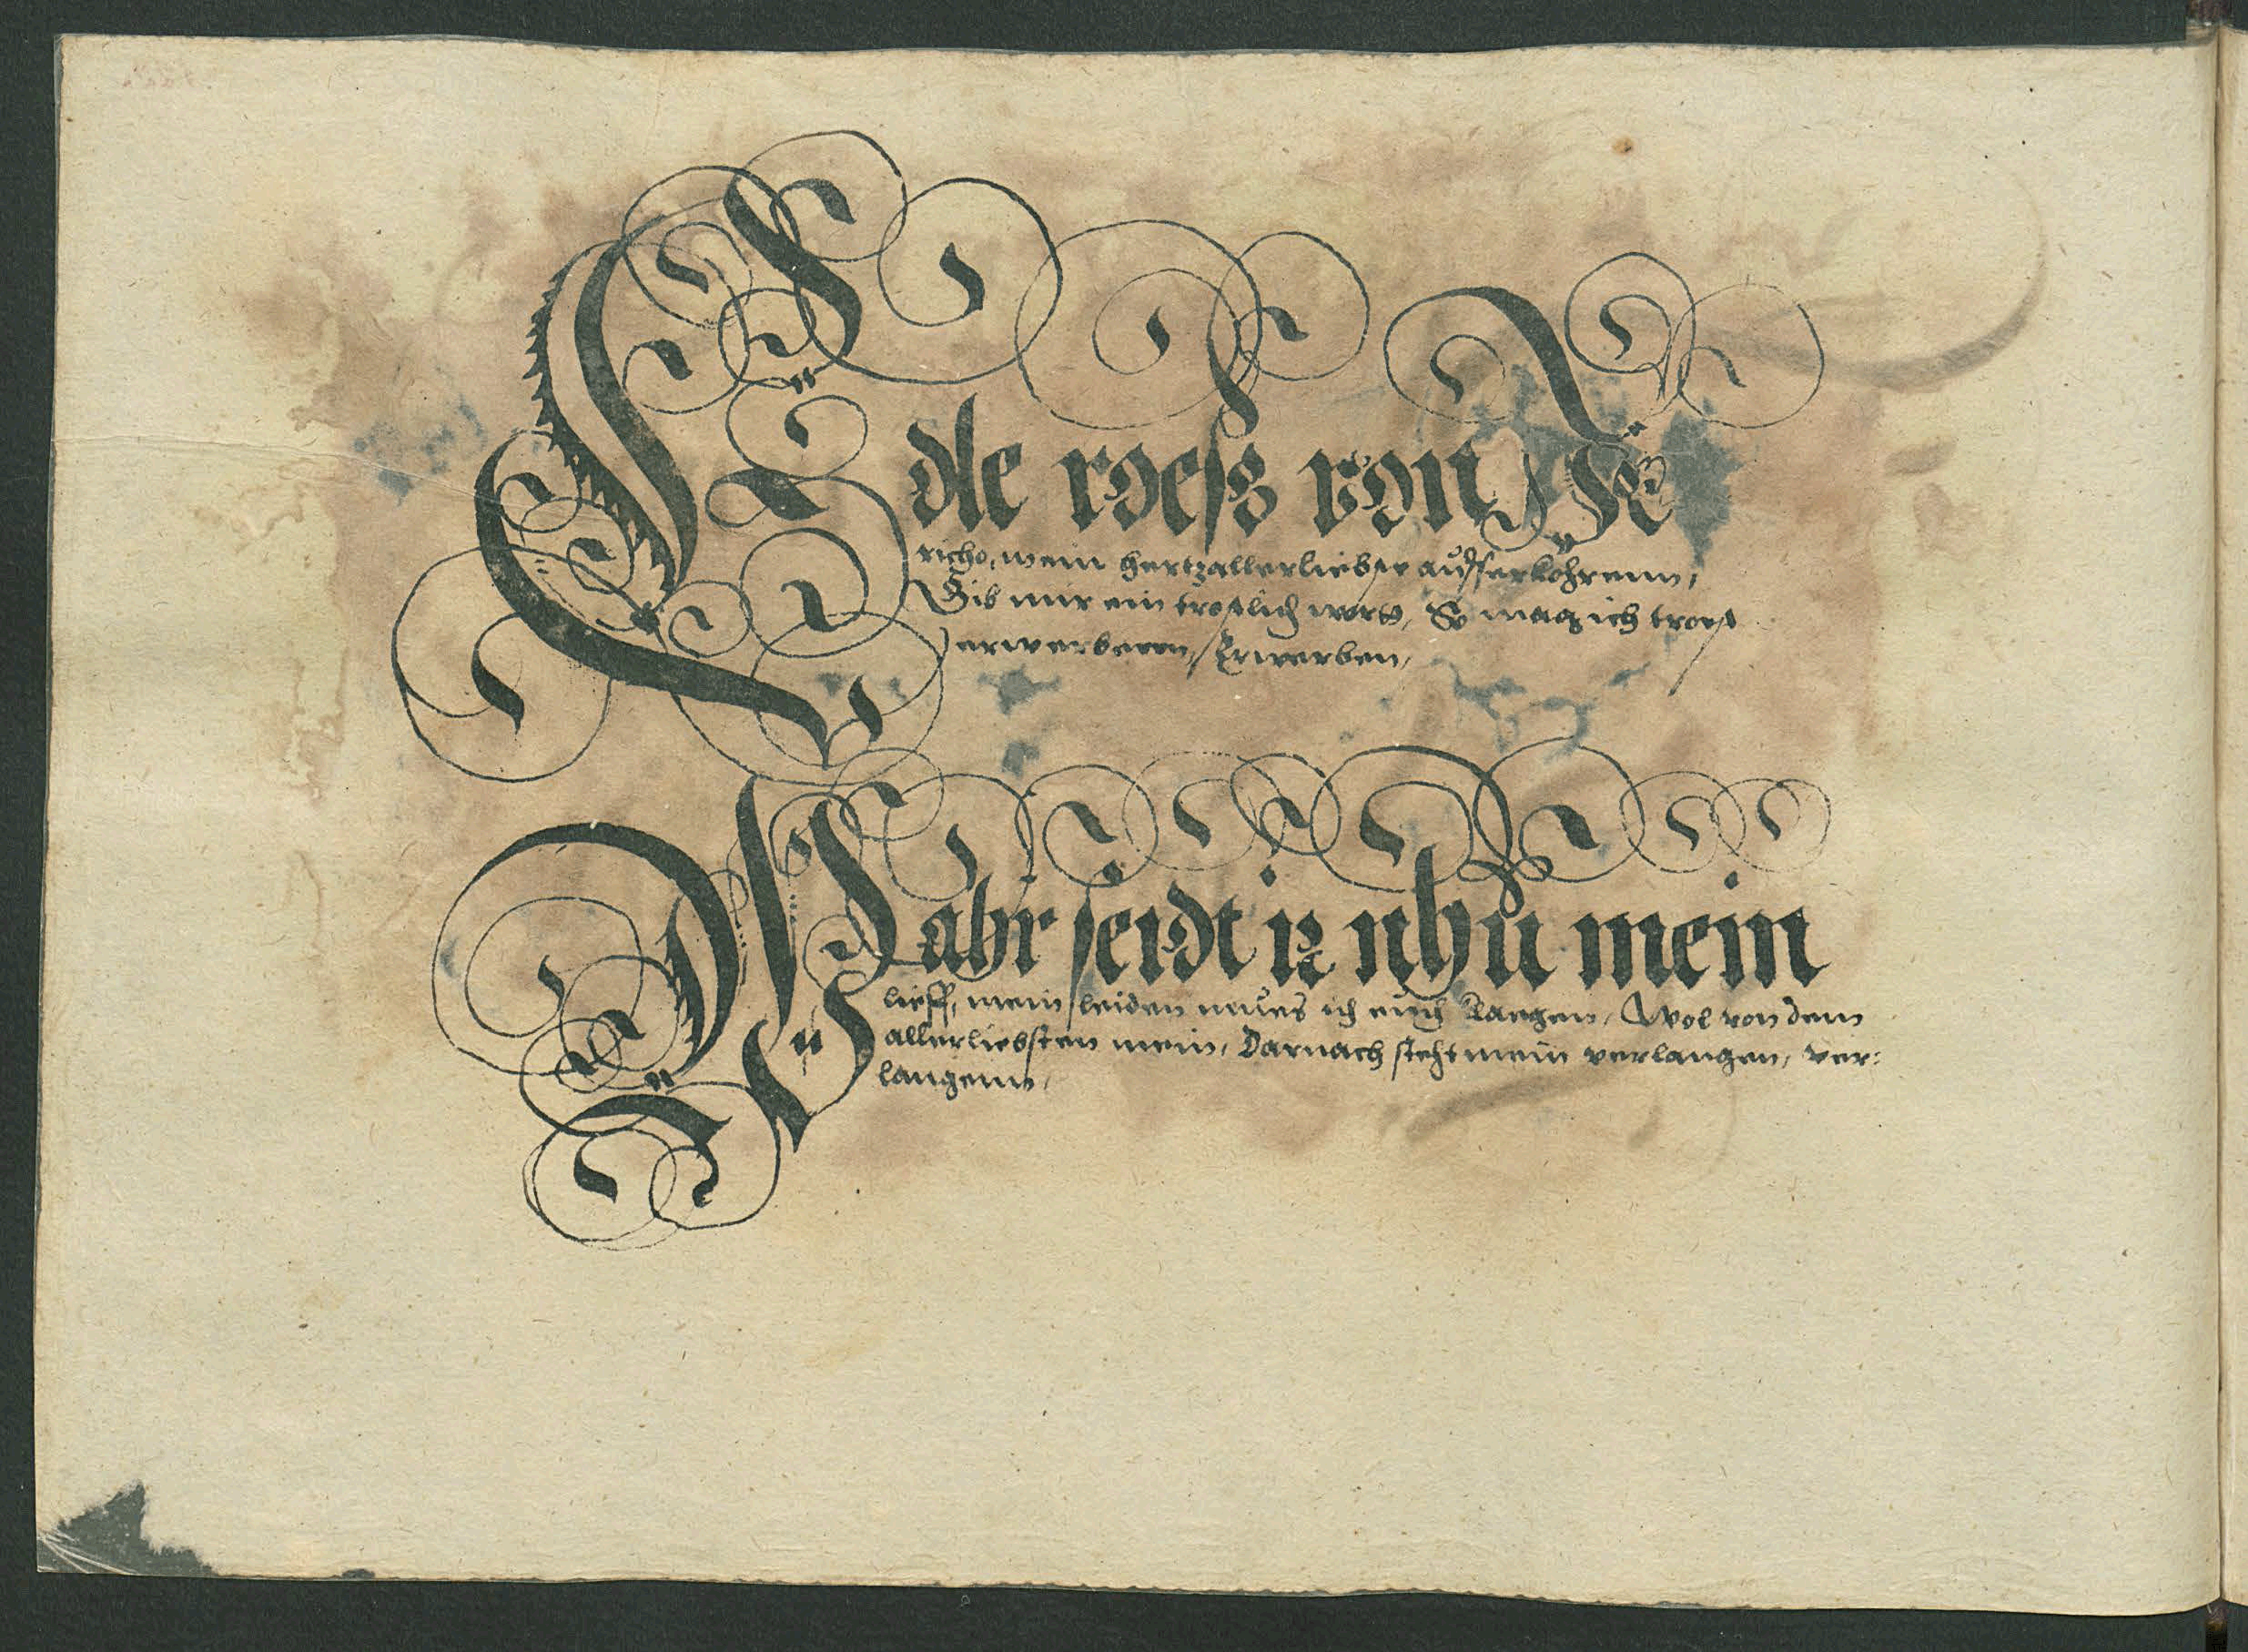 Edle roesz von Je
richo, mein hertzallerliebste ausserkohrenn,
Gib mir ein trostlich wort, So mag ich troest
erwerbenn, Erwerben,
Wahr seidt ir nhu mein
lieff, mein leiden mues ich euch klaegen, Wol von dem
allerliebsten mein, Darnach steht mein verlangen, ver:
langenn,